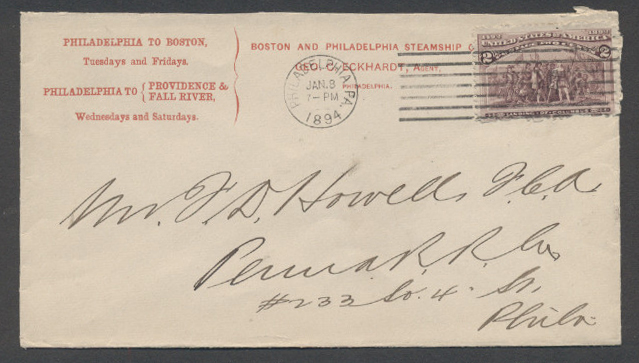 PHILADELPHIA TO BOSTON,
Tuesdays and Fridays.
PHILADELPHIA TO { PROVIDENCE &
FALL RIVER,
Wednesdays and Saturdays.
BOSTON AND PHILADELPHIA STEAMSHIP
GEO. C. ECKHARDT, AGENT,
PHILADELPHIA.
PHILADELPHIA, PA.
JAN. 8
7-PM
1894
UNITED STATES OF AMERICA
2
2
LANDING OF COLUMBUS
Mr. F. D. Howells
Penna R. R. Co
#233 So. 4. St.
Phila